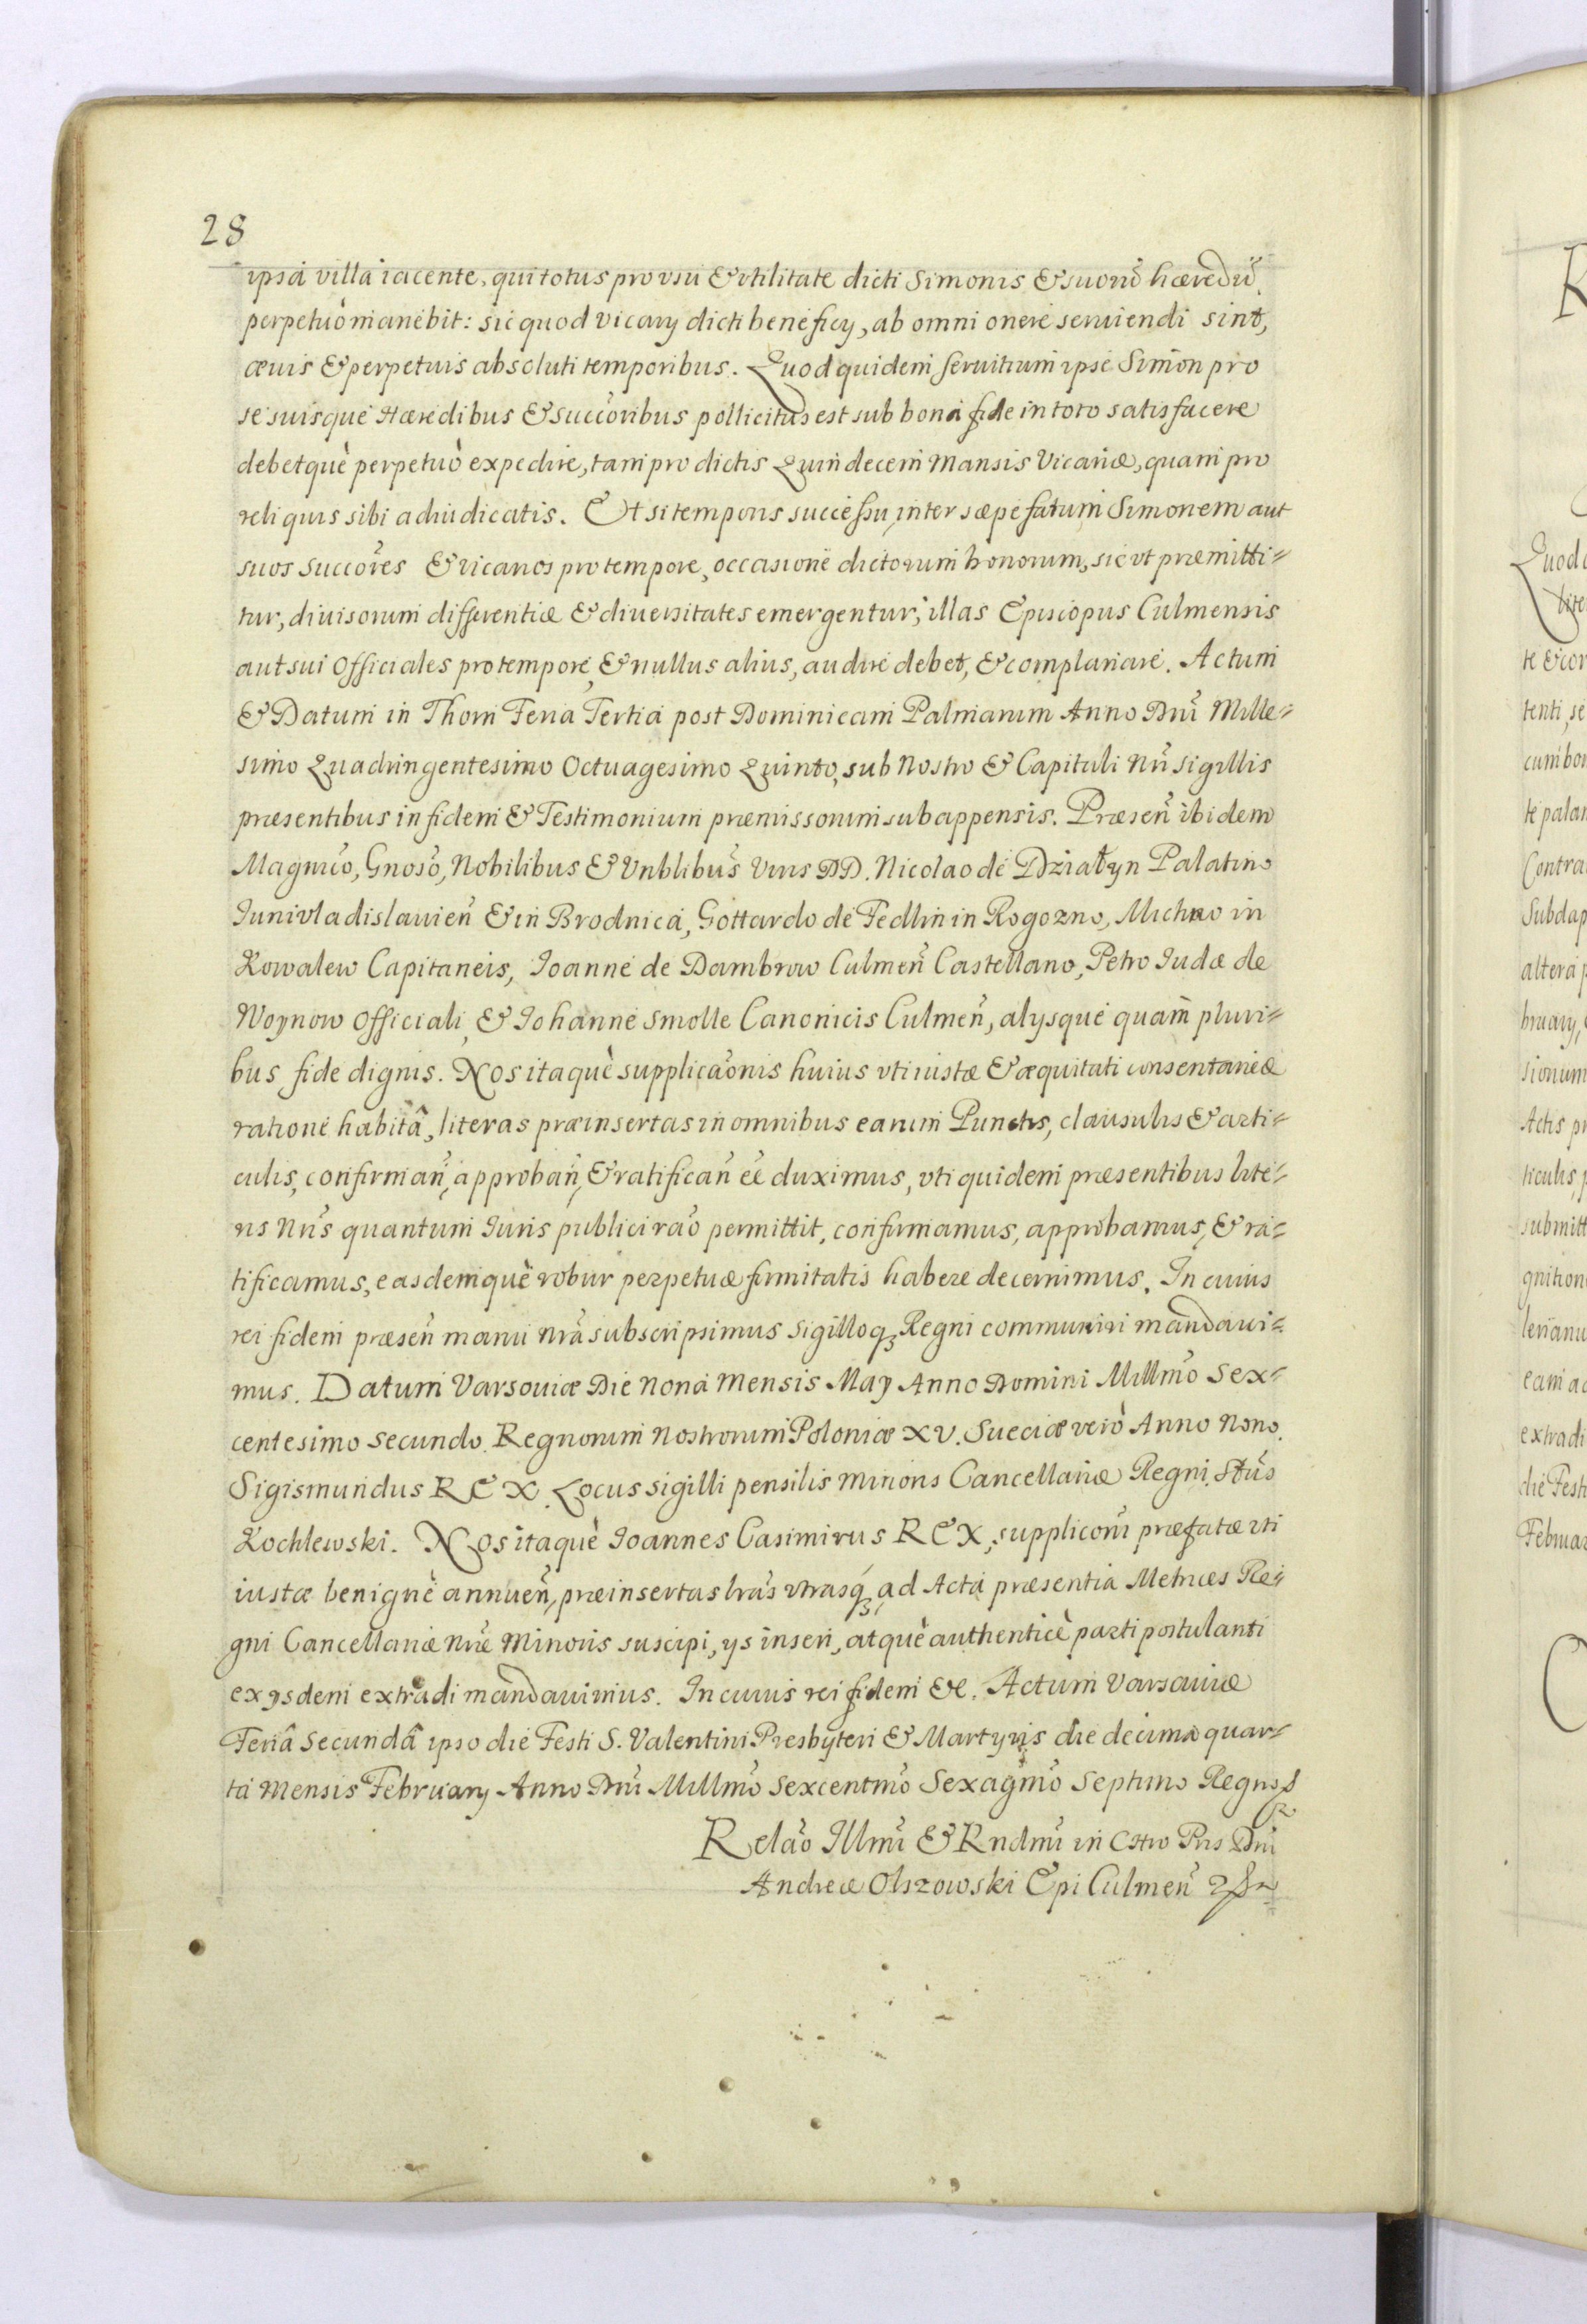 28
ipsa villa iacente, qui totus pro vsu & vtilitate dicti Simonis & suorũ hæredũ
perpetuò manebit: sic quod vicarij dicti beneficij, ab omni onere seruiendi sint,
æuis & perpetuis absoluti temporibus. Quod quidem seruitium ipse Simon pro
se suisque Hæredibus & succõribus pollicitus est sub bona fide in toto satisfacere
debetquè perpetuò expedire, tam pro dictis Quindecem Mansis Vicariæ, quam pro
reliquis sibi adiudicatis. Et si temporis successu, inter sæpefatum Simonem aut
suos succõres & vicarios pro tempore, occasione dictorum bonorum, sic vt præmitti=
tur, diuisorum differentiæ & diuersitates emergentur, illas Episcopus Culmensis
aut sui Officiales pro tempore, & nullus alius, audire debet, & complanare. Actum
& Datum in Thorn Feria Tertia post Dominicam Palmarum Anno Dnĩ Mille=
simo Quadringentesimo Octuagesimo Quinto, sub Nostro & Capituli Nrĩ sigillis
præsentibus in fidem & Testimonium præmissorum subappensis. Præseñ ibidem
Magnicõ, Gnosõ, Nobilibus & Vnblibũs Viris DD. Nicolao de Działyn Palatino
Iunivladislauieñ & in Brodnica, Gottardo de Fedlin in Rogozno, Michao in
Kowalew Capitaneis, Joanne de Dambrow Culmeñ Castellano, Petro Iudæ de
Woynow Officiali, & Johanne Smolle Canonicis Culmeñ, alysque quam pluri=
bus fide dignis. Nos itaquè supplicaõnis huius vti iustæ & æquitati consentaneæ
ratione habitâ, literas præinsertas in omnibus earum Punctis, clausulis & arti=
culis, confirmañ, approbañ, & ratificañ eẽ duximus, vti quidem præsentibus lite=
ris Nrĩs quantum Iuris publici raõ permittit, confirmamus, approbamus, & ra=
tificamus, easdemquè robur perpetuæ firmitatis habere decernimus. In cuius
rei fidem præseñ manu nrã subscripsimus sigilloq3 Regni communiri mandaui=
mus. Datum Varsouiæ Die Nona Mensis May Anno Domini Millmõ Sex=
centesimo secundo. Regnorum Nostrorum Poloniæ XV. Sueciæ verò Anno Nono.
Sigismundus REX. Locus sigilli pensilis Minoris Cancellariæ Regni. Stũs
Kochlewski. Nos itaquè Joannes Casimirus REX, supplicoñi præfatæ vti
iustæ benignè annueñ, præinsertas lrãs vtrasq3, ad Acta præsentia Metrices Re=
gni Cancellariæ Nrẽ Minoris suscipi, ys inseri, atquè authenticè parti postulanti
ex ysdem extradi mandauimus. In cuius rei fidem &c. Actum Varsauiæ
Feriâ Secundâ ipso die Festi S. Valentini Presbyteri & Martyris die decima quar=
ta Mensis February Anno Dnĩ Millmõ Sexcentmõ Sexagmõ Septimo Regnor
Relaõ Illmĩ & Rndmĩ in Chro Pris Dnĩ
Andreæ Olszowski Epi Culmeñ